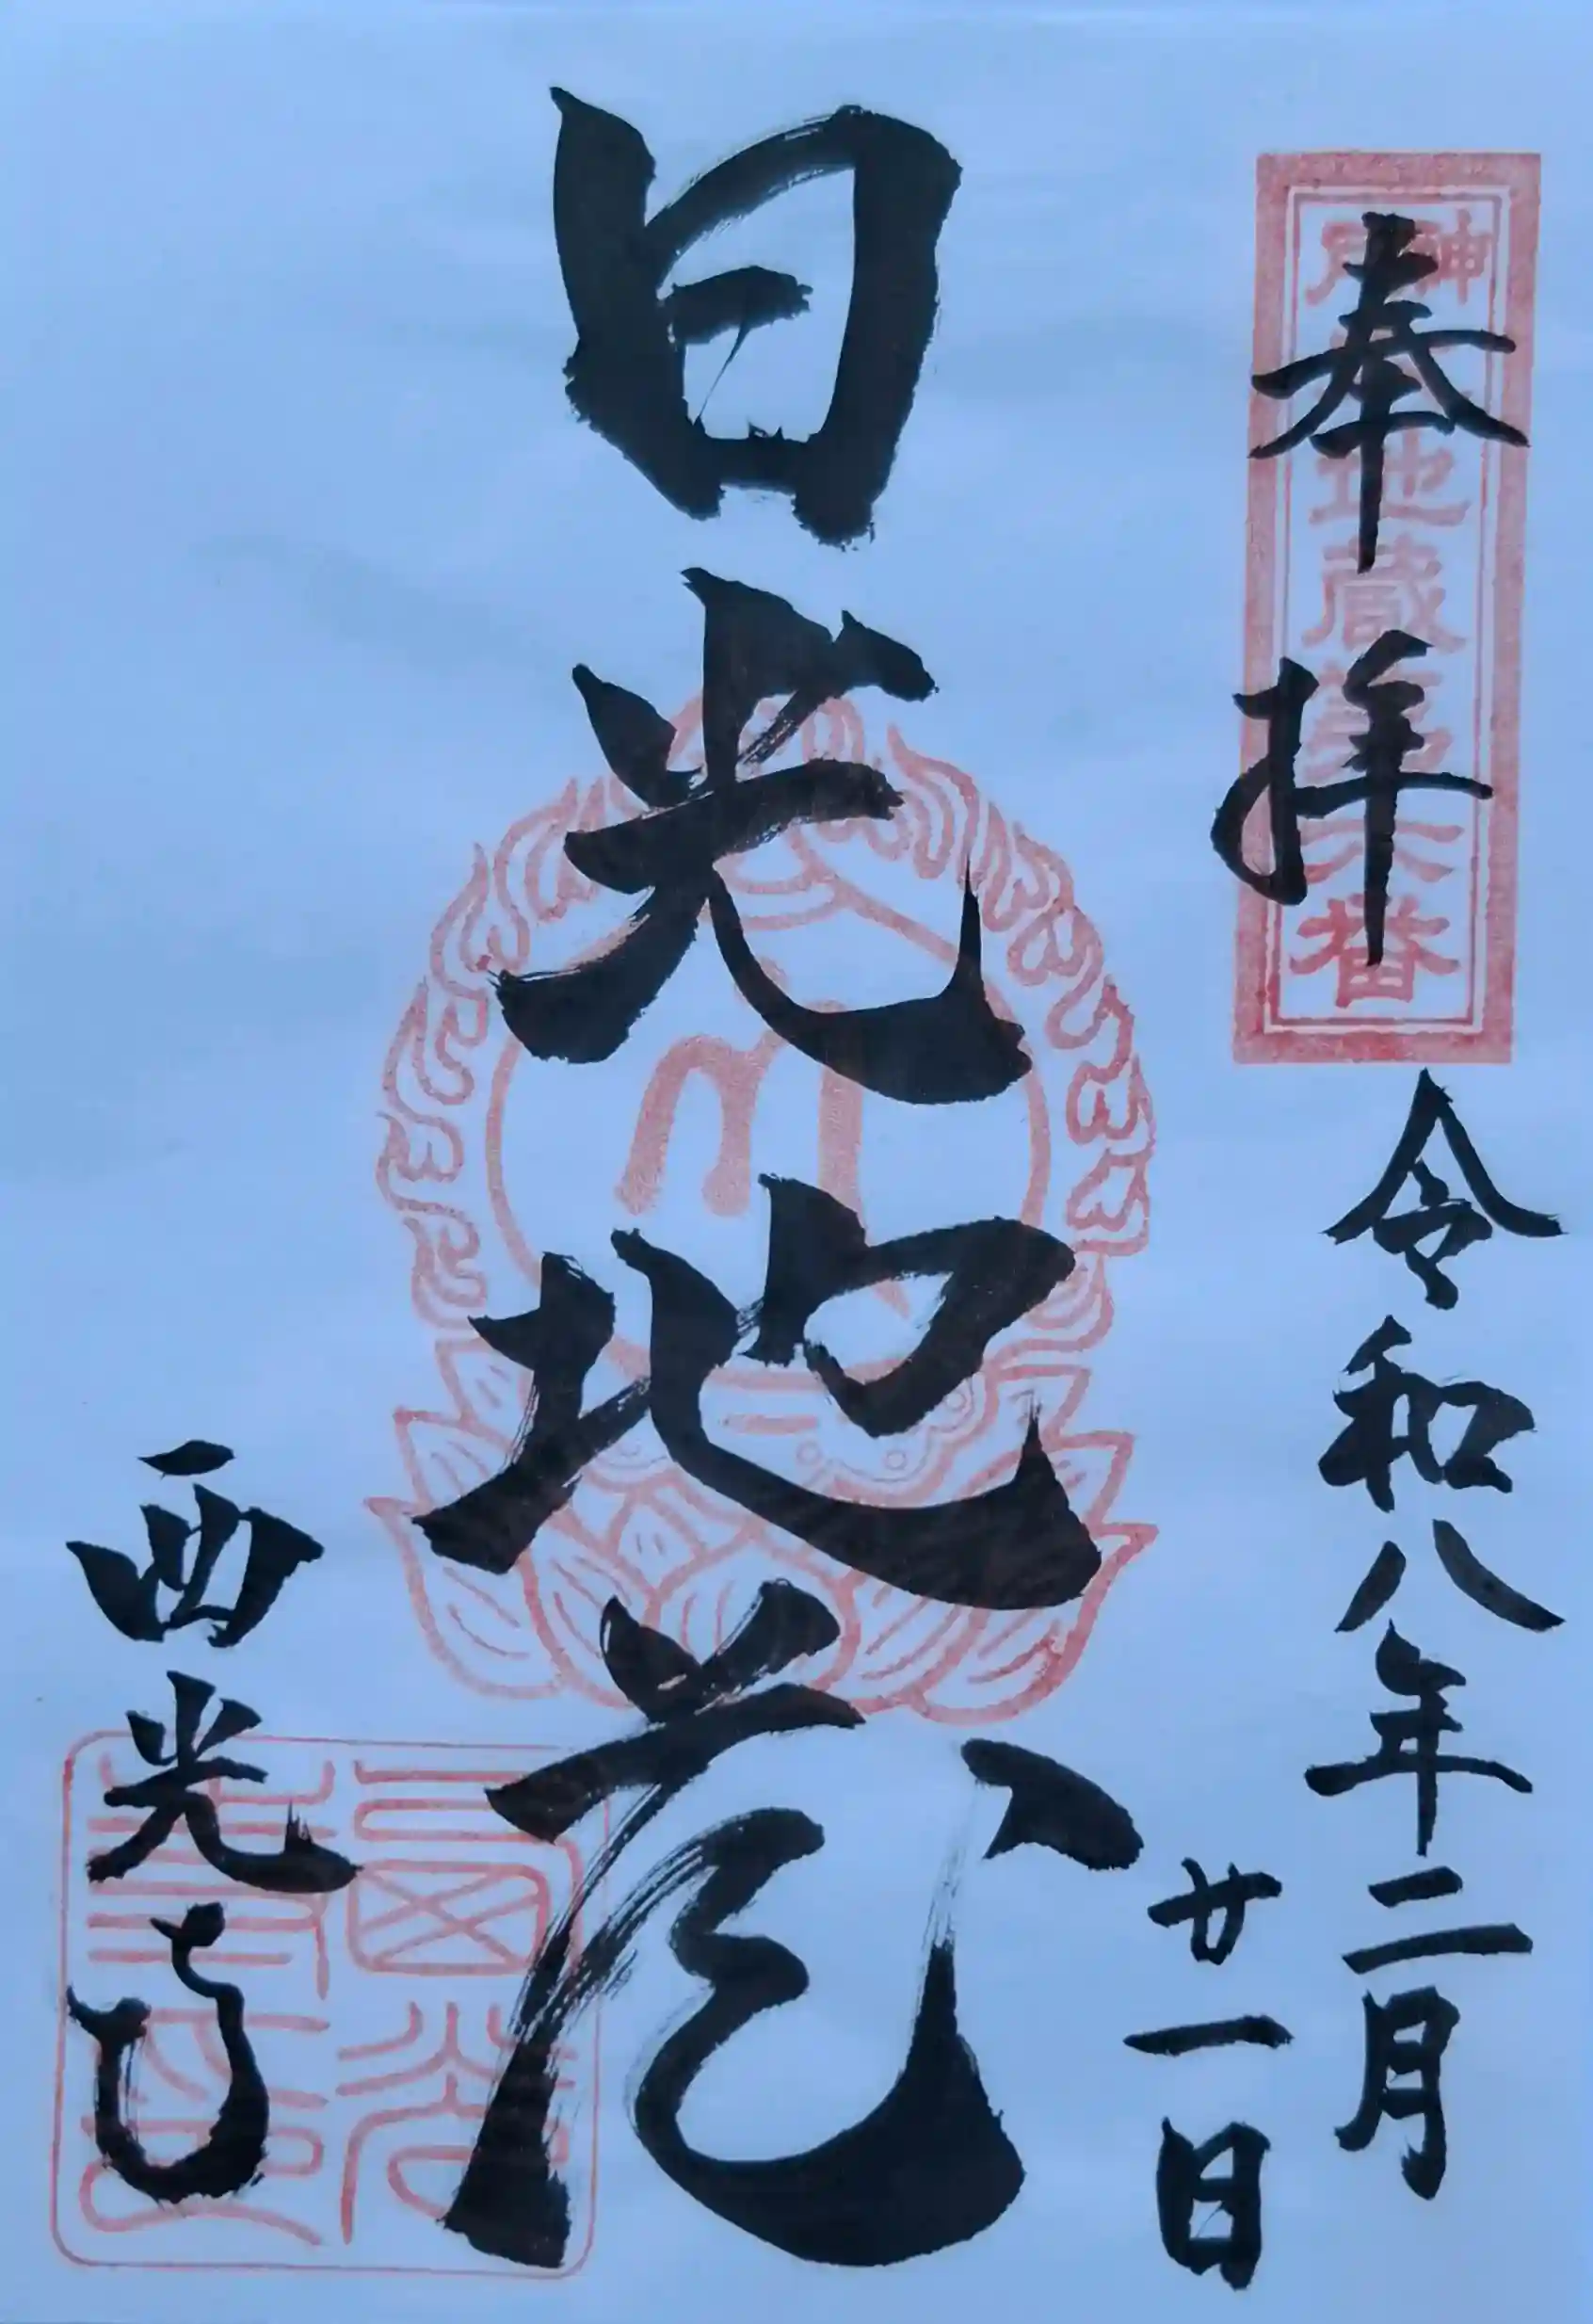 奉拝
令和八年二月
廿一日
日光地蔵
西光寺